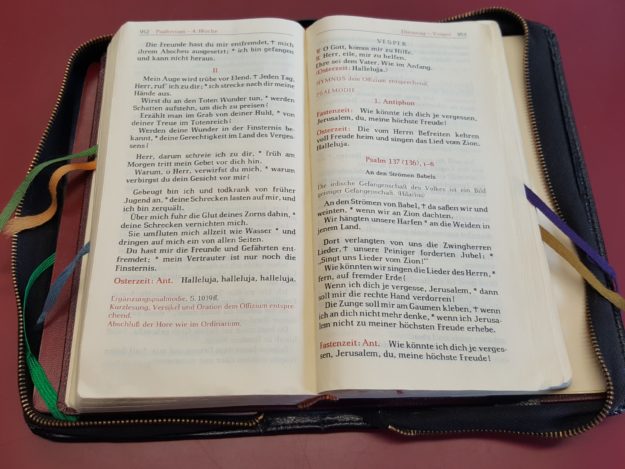 952 Psalterium - 4. Woche
Die Freunde hast du mir entfremdet, † mich
ihrem Abscheu ausgesetzt; * ich bin gefangen
und kann nicht heraus.
II
Mein Auge wird trübe vor Elend. † Jeden Tag,
Herr, ruf' ich zu dir; * ich strecke nach dir meine
Hände aus.
Wirst du an den Toten Wunder tun, * werden
Schatten aufstehn, um dich zu preisen?
Erzählt man im Grab von deiner Huld, * von
deiner Treue im Totenreich?
Werden deine Wunder in der Finsternis be-
kannt, * deine Gerechtigkeit im Land des Verges-
sens?
Herr, darum schreie ich zu dir, * früh am
Morgen tritt mein Gebet vor dich hin.
Warum, o Herr, verwirfst du mich, * warum
verbirgst du dein Gesicht vor mir?
Gebeugt bin ich und todkrank von früher
Jugend an, * deine Schrecken lasten auf mir, und
ich bin zerquält.
Über mich fuhr die Glut deines Zorns dahin, *
deine Schrecken vernichten mich.
Sie umfluten mich allzeit wie Wasser * und
dringen auf mich ein von allen Seiten.
Du hast mir die Freunde und Gefährten ent-
fremdet; * mein Vertrauter ist nur noch die
Finsternis.
Osterzeit: Ant. Halleluja, halleluja, halleluja.
Ergänzungspsalmodie, S.
Kurzlesung, Versikel und Oration dem Offizium entspre-
chend.
Abschluß der Hore wie im Ordinarium.
Dienstag - Vesper 953
VESPER
℣ O Gott, komm mir zu Hilfe.
℟ Herr, eile, mir zu helfen.
Ehre sei dem Vater. Wie im Anfang.
(Osterzeit: Halleluja.)
HYMNUS dem Offizium entsprechend.
PSALMODIE
1. Antiphon
Fastenzeit: Wie könnte ich dich je vergessen,
Jerusalem, du, meine höchste Freude!
Osterzeit: Die vom Herrn Befreiten kehren
voll Freude heim und singen das Lied vom Zion.
Halleluja.
Psalm 137 (136), 1–6
An den Strömen Babels
Die irdische Gefangenschaft des Volkes ist ein Bild
geistiger Gefangenschaft. (Hilarius)
An den Strömen von Babel, † da saßen wir und
weinten, * wenn wir an Zion dachten.
Wir hängten unsere Harfen * an die Weiden in
jenem Land.
Dort verlangten von uns die Zwingherren
Lieder, † unsere Peiniger forderten Jubel: *
„Singt uns Lieder vom Zion!"
Wie könnten wir singen die Lieder des Herrn, *
fern, auf fremder Erde?
Wenn ich dich je vergesse, Jerusalem, * dann
soll mir die rechte Hand verdorren!
Die Zunge soll mir am Gaumen kleben, † wenn
ich an dich nicht mehr denke, * wenn ich Jerusa-
lem nicht zu meiner höchsten Freude erhebe.
Fastenzeit: Ant. Wie könnte ich dich je verges-
sen, Jerusalem, du, meine höchste Freude!